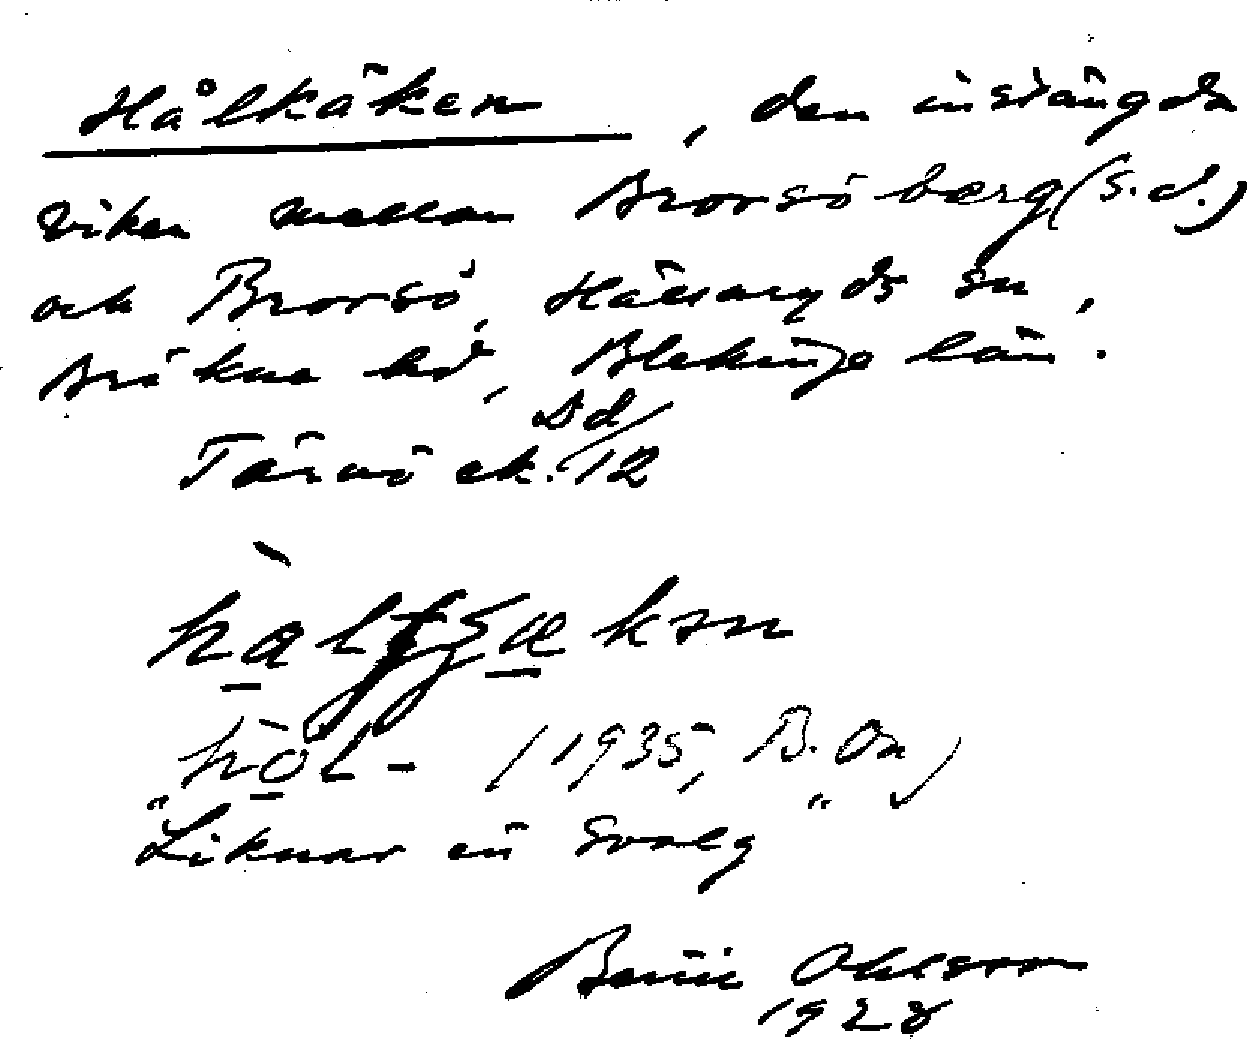 Hålkäken, den instängda
viken mellan Brorsö berg (s.d.)
och Brorsö, Hällaryds sn,
Bräkne hd, Blekinge län.
Tärnö ek. Dd/12
hal
kən
hol- (1935, B. On)
"Liknar en svalg"
Bertil Ohlsson
1928